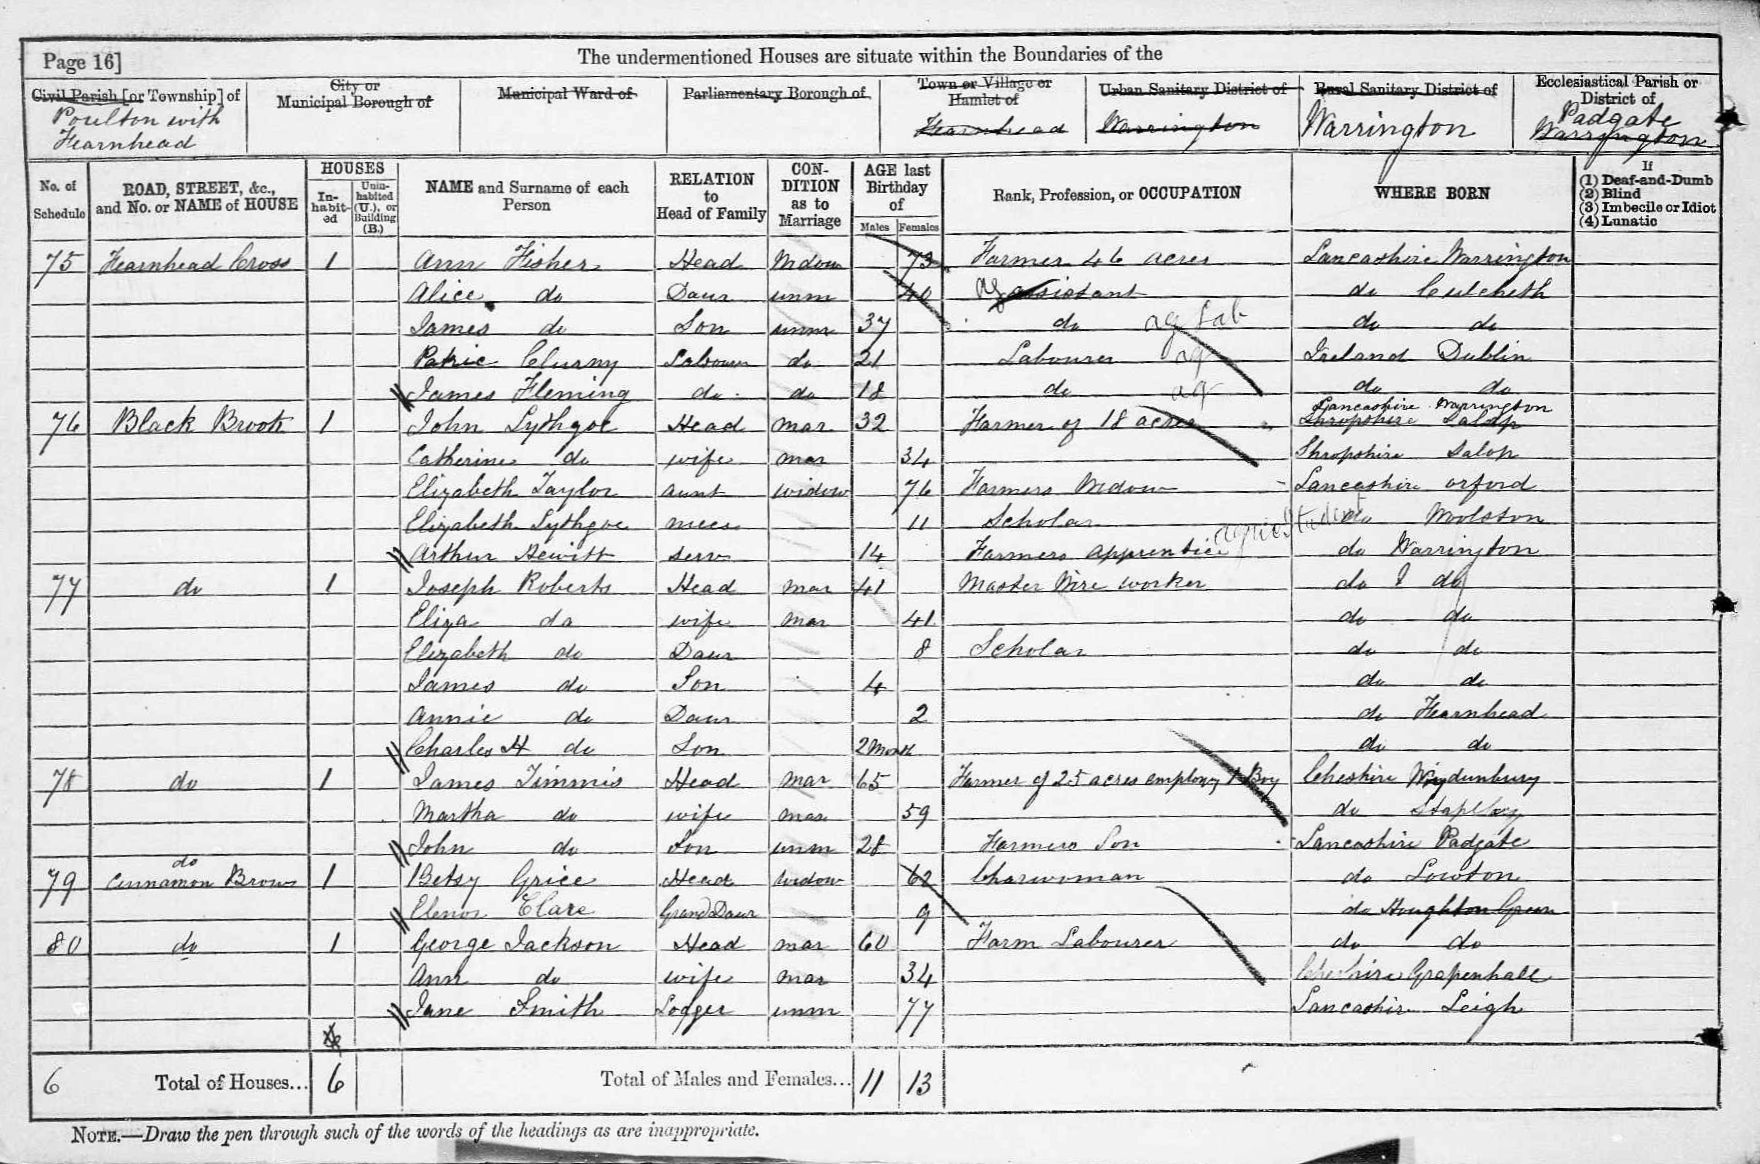 Page 16]
The undermentioned Houses are situate within the Boundaries of the
Civil Parish [or Township] of
Poulton with
Fearnhead
City or
Municipal Borough of
Municipal Ward of
Parliamentary Borough of
Town or Village or
Hamlet of
Fearnhead
Urban Sanitary District of
Warrington
Rural Sanitary District of
Warrington
Ecclesiastical Parish or
District of
Padgate
Warrington
No. of Schedule
ROAD, STREET, &c., and No. or NAME of HOUSE
HOUSES
In-habit-ed
Unin-habited (U.), or Building (B.)
NAME and Surname of each Person
RELATION to Head of Family
CON-DITION as to Marriage
AGE last Birthday of
Males Females
Rank, Profession, or OCCUPATION
WHERE BORN
If
(1) Deaf-and-Dumb
(2) Blind
(3) Imbecile or Idiot
(4) Lunatic
75 Fearnhead Cross 1 Ann Fisher Head Widow 73 Farmer 46 acres Lancashire Warrington
Alice do Daur unm 40 ag assistant do Culcheth
James do Son unm 37 do ag Lab do do
Patric Clurny Labourer do 21 Labourer ag Ireland Dublin
James Fleming do do 18 do ag do do
Lancashire Warrington
76 Black Brook 1 John Lythgoe Head mar 32 Farmer of 18 acres Shropshire Salop
Catherine do wife mar 34 Shropshire Salop
Elizabeth Taylor aunt widow 76 Farmers Widow Lancashire orford
Elizabeth Lythgoe niece 11 Scholar do Woolston
Arthur Hewitt serv 14 Farmers apprentice do Warrington
77 do 1 Joseph Roberts Head mar 41 Master Wire worker do do
Eliza do wife mar 41 do do
Elizabeth do Daur 8 Scholar do do
James do Son 4 do do
Annie do Daur 2 do Fearnhead
Charles H do Son 2 Month do do
78 do 1 James Timmis Head mar 65 Farmer of 25 acres employ 1 Boy Cheshire Wydunbury
Martha do wife mar 59 do Stapl
John do Son unm 28 Farmers Son Lancashire Padgate
do
79 Cinnamon Brow 1 Betsy Grice Head widow 62 Charwoman do Lowton
Elenor Clare Grand Daur 9 do Houghton Green
80 do 1 George Jackson Head mar 60 Farm Labourer do do
Ann do wife mar 34 Cheshire Grapenhall
Jane Smith Lodger unm 77 Lancashire Leigh
6 Total of Houses... 6 Total of Males and Females... 11 13
NOTE.—Draw the pen through such of the words of the headings as are inappropriate.